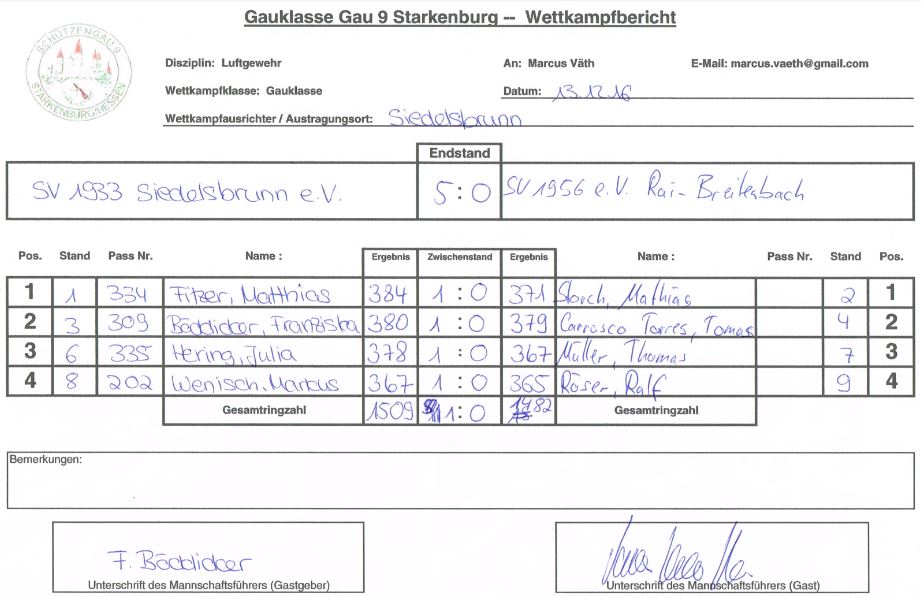 Gauklasse Gau 9 Starkenburg -- Wettkampfbericht
SCHÜTZENGAU 9
STARKENBURG/HESSEN
Disziplin: Luftgewehr An: Marcus Väth E-Mail: marcus.vaeth@gmail.com
Wettkampfklasse: Gauklasse Datum: 13.12.16
Wettkampfausrichter / Austragungsort: Siedelsbrunn
Endstand
SV 1933 Siedelsbrunn e.V. 5 : 0 SV 1956 e.V. Rai-Breitenbach
Pos. Stand Pass Nr. Name : Ergebnis Zwischenstand Ergebnis Name : Pass Nr. Stand Pos.
1 1 334 Fitzer, Matthias 384 1 : 0 371 Storch, Mathias 2 1
2 3 309 Böddicker, Franziska 380 1 : 0 379 Carrosco Torres, Tomas 4 2
3 6 335 Hering, Julia 378 1 : 0 367 Müller, Thomas 7 3
4 8 202 Wenisch, Markus 367 1 : 0 365 Röser, Ralf 9 4
Gesamtringzahl 1509 1 : 0 1482 Gesamtringzahl
Bemerkungen:
F. Böddicker
Unterschrift des Mannschaftsführers (Gastgeber) Unterschrift des Mannschaftsführers (Gast)